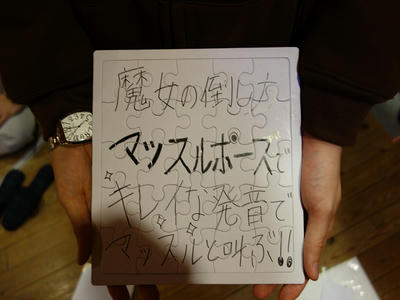 魔女の倒し方
マッスルポーズで
キレイな発音で
マッスルと叫ぶ!!